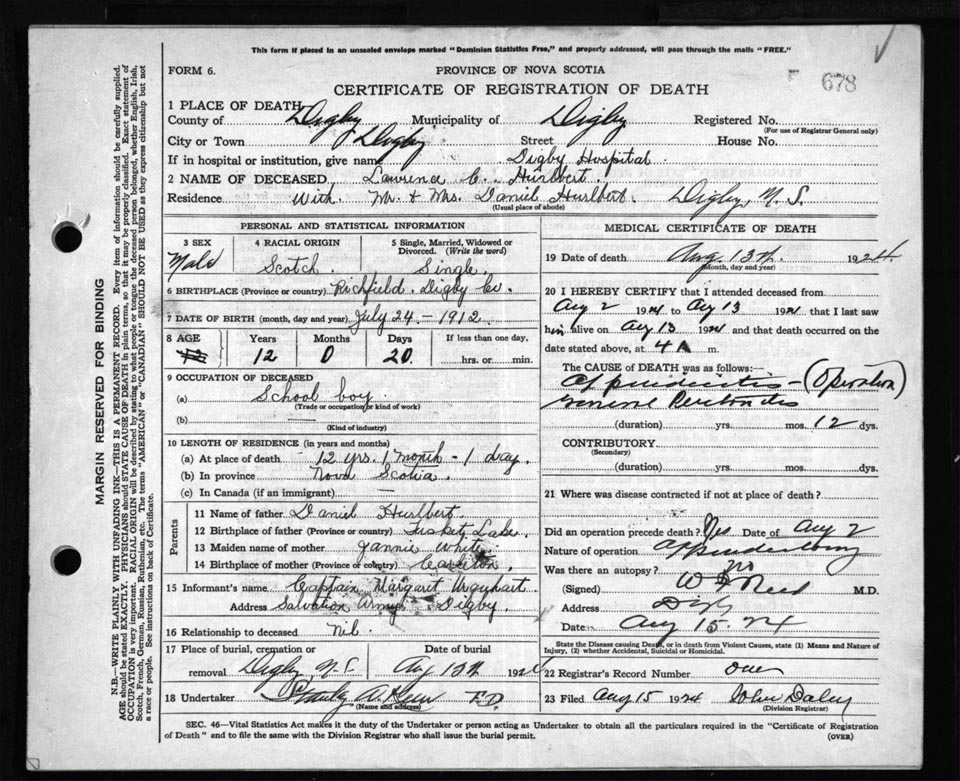 This form if placed in an unsealed envelope marked "Dominion Statistics Free," and properly addressed, will pass through the mails "FREE."
FORM 6.
PROVINCE OF NOVA SCOTIA
678
CERTIFICATE OF REGISTRATION OF DEATH
1 PLACE OF DEATH
County of Digby Municipality of Digby Registered No.
(For use of Registrar General only)
City or Town Digby Street House No.
If in hospital or institution, give name Digby Hospital.
2 NAME OF DECEASED, Lawrence C. Hurlbert.
Residence With Mr. & Mrs. Daniel Hurlbert. Digby, N. S.
(Usual place of abode)
PERSONAL AND STATISTICAL INFORMATION
3 SEX Male
4 RACIAL ORIGIN Scotch.
5 Single, Married, Widowed or Divorced. (Write the word) Single.
6 BIRTHPLACE (Province or country) Richfield. Digby Co.
7 DATE OF BIRTH (month, day and year) July 24 - 1912.
8 AGE 12 Years 12 Months 0 Days 20 If less than one day, hrs. or min.
9 OCCUPATION OF DECEASED
(a) School boy.
(Trade or occupation or kind of work)
(b)
(Kind of industry)
10 LENGTH OF RESIDENCE (in years and months)
(a) At place of death - 12 yrs. 1 month - 1 day.
(b) In province Nova Scotia
(c) In Canada (if an immigrant) —
Parents
11 Name of father Daniel Hurlbert.
12 Birthplace of father (Province or country) Tusket Lake.
13 Maiden name of mother Jannie White
14 Birthplace of mother (Province or country) Carleton.
15 Informant's name Captain Margaret Urquhart
Address Salvation Army Digby.
16 Relationship to deceased Nil.
17 Place of burial, cremation or removal Digby N.S. Date of burial Aug 13th 1924
18 Undertaker
(Name and address)
MEDICAL CERTIFICATE OF DEATH
19 Date of death Aug. 13th. 1924.
(Month, day and year)
20 I HEREBY CERTIFY that I attended deceased from
Aug 2 1924 to Aug 13 1924 that I last saw
him alive on Aug 13 1924 and that death occurred on
date stated above, at 4 A m.
The CAUSE of DEATH was as follows:—
appendicitis - (Operation)
General Peritonitis
(duration) yrs. mos. 12 dys.
CONTRIBUTORY
(Secondary)
(duration) yrs. mos. dys.
21 Where was disease contracted if not at place of death?
Did an operation precede death? Yes Date of Aug 2
Nature of operation appendectomy
Was there an autopsy? no
(Signed) Reed M.D.
Address Digby
Date Aug 15. 24
State the Disease causing Death, or in death from Violent Causes, state (1) Means and Nature of Injury, (2) whether Accidental, Suicidal or Homicidal.
22 Registrar's Record Number
23 Filed Aug 15 1924 John Daley
(Division Registrar)
SEC. 46—Vital Statistics Act makes it the duty of the Undertaker or person acting as Undertaker to obtain all the particulars required in the "Certificate of Registration
of Death" and to file the same with the Division Registrar who shall issue the burial permit.
(OVER)
MARGIN RESERVED FOR BINDING
N.B.—WRITE PLAINLY WITH UNFADING INK—THIS IS A PERMANENT RECORD. Every item of information should be carefully supplied.
AGE should be stated EXACTLY. PHYSICIANS should STATE CAUSE OF DEATH in plain terms, so that it may be properly classified. Exact statement of
OCCUPATION is very important. RACIAL ORIGIN will be described by stating to what people or tongue the deceased person belonged, whether English, Irish,
Scotch, French, German, Russian, Ruthenian, etc. The terms "AMERICAN" or "CANADIAN" SHOULD NOT BE USED as they express citizenship but not
a race or people. See instructions on back of Certificate.